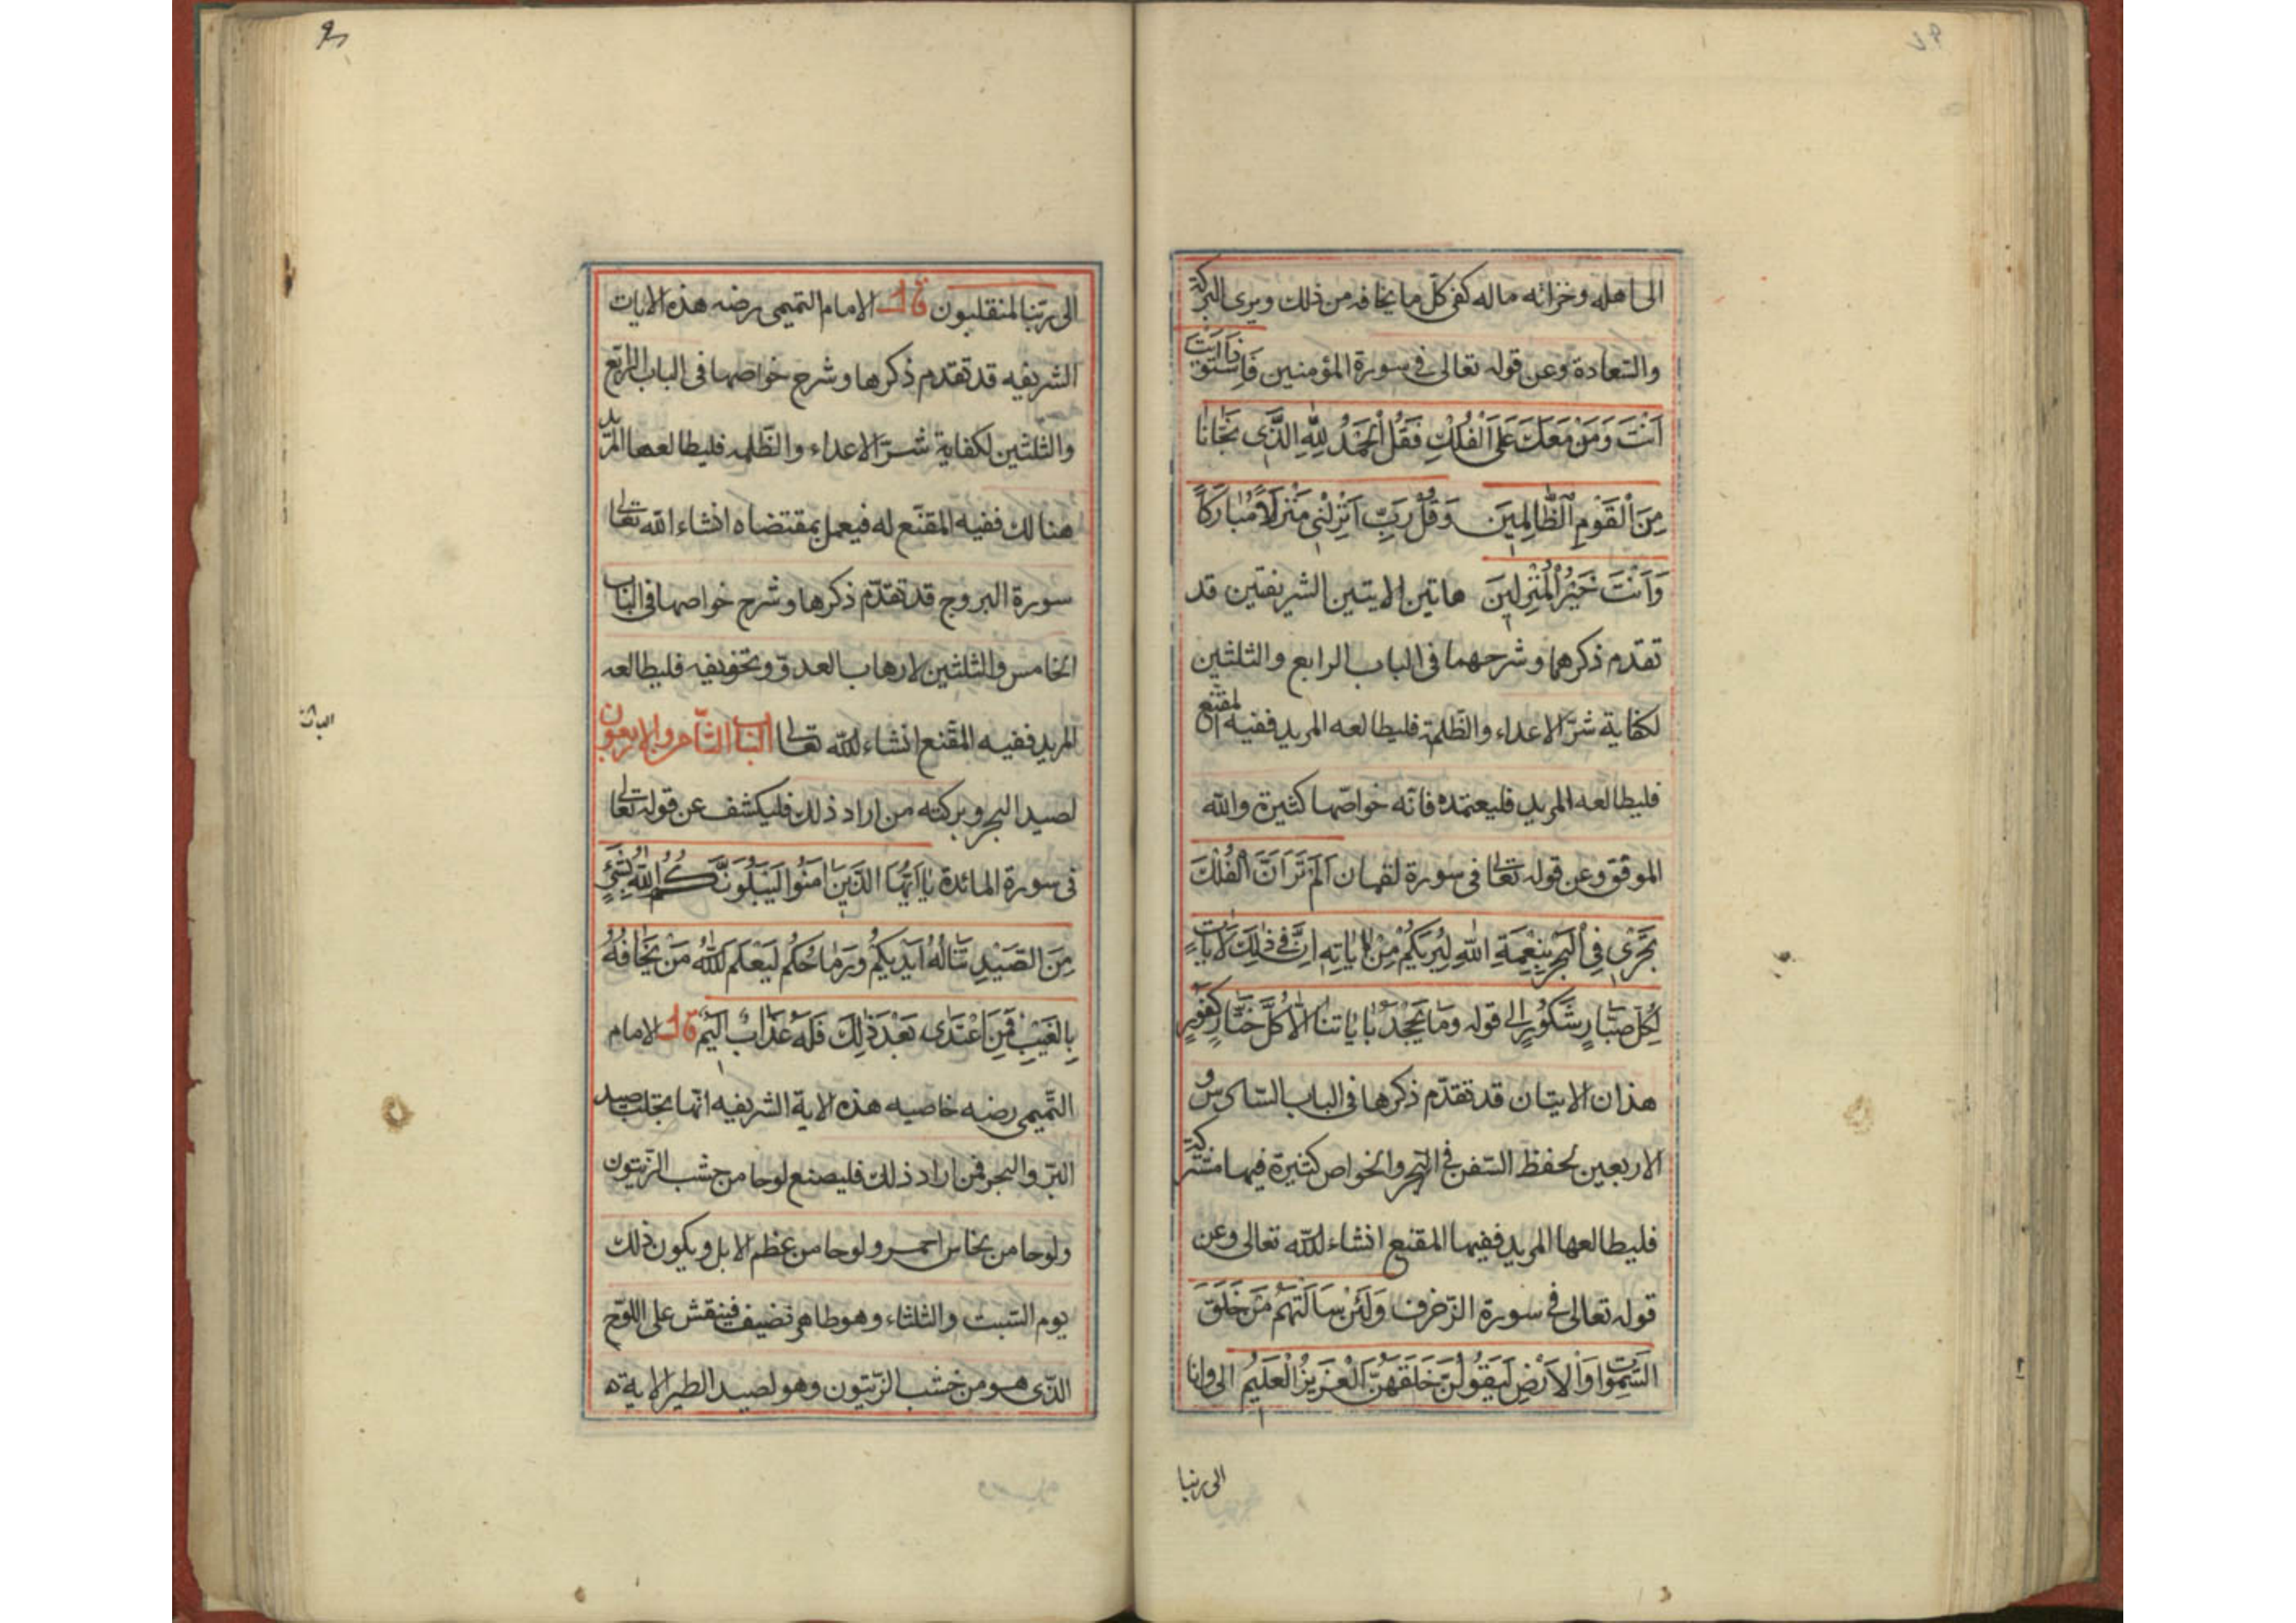 الى اهله وخزانه ماله كفى كل ما يخافه من ذلك ويرى البركة
والسعادة وعن قوله تعالى فى سورة المؤمنين فَاِذَا اسْتَوَيْتَ
اَنْتَ وَمَنْ مَعَكَ عَلَى الْفُلْكِ فَقُلِ الْحَمْدُ لِلّٰهِ الَّذِى نَجّٰانَا
مِنَ الْقَوْمِ الظّٰالِمِينَ وَقُلْ رَبِّ اَنْزِلْنِى مُنْزَلًا مُبٰارَكًا
وَاَنْتَ خَيْرُ الْمُنْزِلِينَ هاتين الايتين الشريفتين قد
تقدم ذكرهما وشرحهما فى الباب الرابع والثلثين
لكفاية شرّ الاعداء والظّلمة فليطالعه المريد ففيه المقنع
فليطالعه المريد فليعتمده فانّه خواصّها كثيرة والله
الموفق وعن قوله تعالى فى سورة لقمان اَلَمْ تَرَ اَنَّ الْفُلْكَ
تَجْرِى فِى الْبَحْرِ بِنِعْمَةِ اللّٰهِ لِيُرِيَكُمْ مِنْ اٰيٰاتِهِ اِنَّ فِى ذٰلِكَ لَاٰيٰاتٍ
لِكُلِّ صَبّٰارٍ شَكُورٍ الى قوله وَمٰا يَجْحَدُ بِاٰيٰاتِنٰا اِلّٰا كُلُّ خَتّٰارٍ كَفُورٍ
هذان الايتان قد تقدّم ذكرها فى الباب السّادس و
الاربعين لحفظ السّفن فى البحر والخواص كثيرة فيها مشتركة
فليطالعها المريد ففيها المقنع انشاء لله تعالى وعن
قوله تعالى فى سورة الزّخرف وَلَئِنْ سَاَلْتَهُمْ مَنْ خَلَقَ
السَّمٰوٰاتِ وَالْاَرْضِ لَيَقُولُنَّ خَلَقَهُنَّ الْعَزِيزُ الْعَلِيمُ الى وانا
الى ربنا
الى ربّنا لمنقلبون قال الامام التميمى رضه هذه الايات
الشريفه قد تقدم ذكرها وشرح خواصها فى الباب الرابع
والثلثين لكفاية شرّ الاعداء والظّلمه فليطالعها المريد
هنالك ففيه المقنّع له فيعمل بمقتضاه انشاء الله تعالى
سورة البروج قد تقدّم ذكرها وشرح خواصها فى الباب
الخامس والثلثين لارهاب العدوّ وتخويفه فليطالعه
المريد ففيه المقنع انشاء لله تعالى الباب الثامن والاربعون
لصيد البحر وبركته من اراد ذلك فليكشف عن قوله تعالى
فى سورة المائدة يٰا اَيُّهَا الَّذِينَ اٰمَنُوا لَيَبْلُوَنَّكُمُ اللّٰهُ بِشَيْءٍ
مِنَ الصَّيْدِ تَنٰالُهُ اَيْدِيكُمْ وَرِمٰاحُكُمْ لِيَعْلَمَ اللّٰهُ مَنْ يَخٰافُهُ
بِالْغَيْبِ فَمَنِ اعْتَدٰى بَعْدَ ذٰلِكَ فَلَهُ عَذٰابٌ اَلِيمٌ قال الامام
التّميمى رضه خاصيه هذه الاية الشريفه انّها تجلب صيد
البرّ والبحر فمن اراد ذلك فليصنع لوحا من خشب الزّيتون
ولوحا من نحاس احمر ولوحا من عظم الابل ويكون ذلك
يوم السّبت والثلثاء وهو طاهر نضيف فينقش على اللوح
الذّى هو من خشب الزّيتون وهو لصيد الطير الاية ه